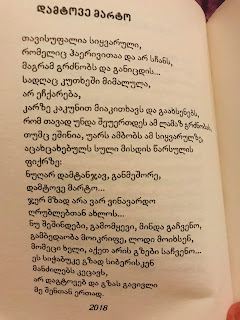 დამტოვე მარტო
თავისუფალია სიყვარული,
რომელიც ჰაერივითაა და არ სჩანს,
მაგრამ გრძნობს და განიცდის...
სადღაც კუთხეში მიმალულა,
არ ეჩქარება,
კარზე კაკუნით მიაკითხავს და გაახსენებს,
რომ თავად უნდა შეუერთდეს ამ ლამაზ გრძნობას,
თუმც ეშინია, უარს ამბობს ამ სიყვარულზე,
აცახცახებულს სული მისდის წარსულის
ფიქრზე:
ნუღარ დამტანჯავ, განმეშორე,
დამტოვე მარტო...
ჯერ მზად არა ვარ ვინავარდო
ღრუბლებთან ახლოს...
ნუ შეშინდები, გამომყევი, მინდა გაჩვენო,
გამბედაობა მოიკრიფე, ლოდი მოიხსენ,
მომეცი ხელი, აქეთ არის გზები საჩვენო...
ეს სიჭაბუკე გზად სიბერისკენ
მანძილებს კეცავს,
არ დაგტოვებ და გზას გავივლი
მე შენთან ერთად.
2018